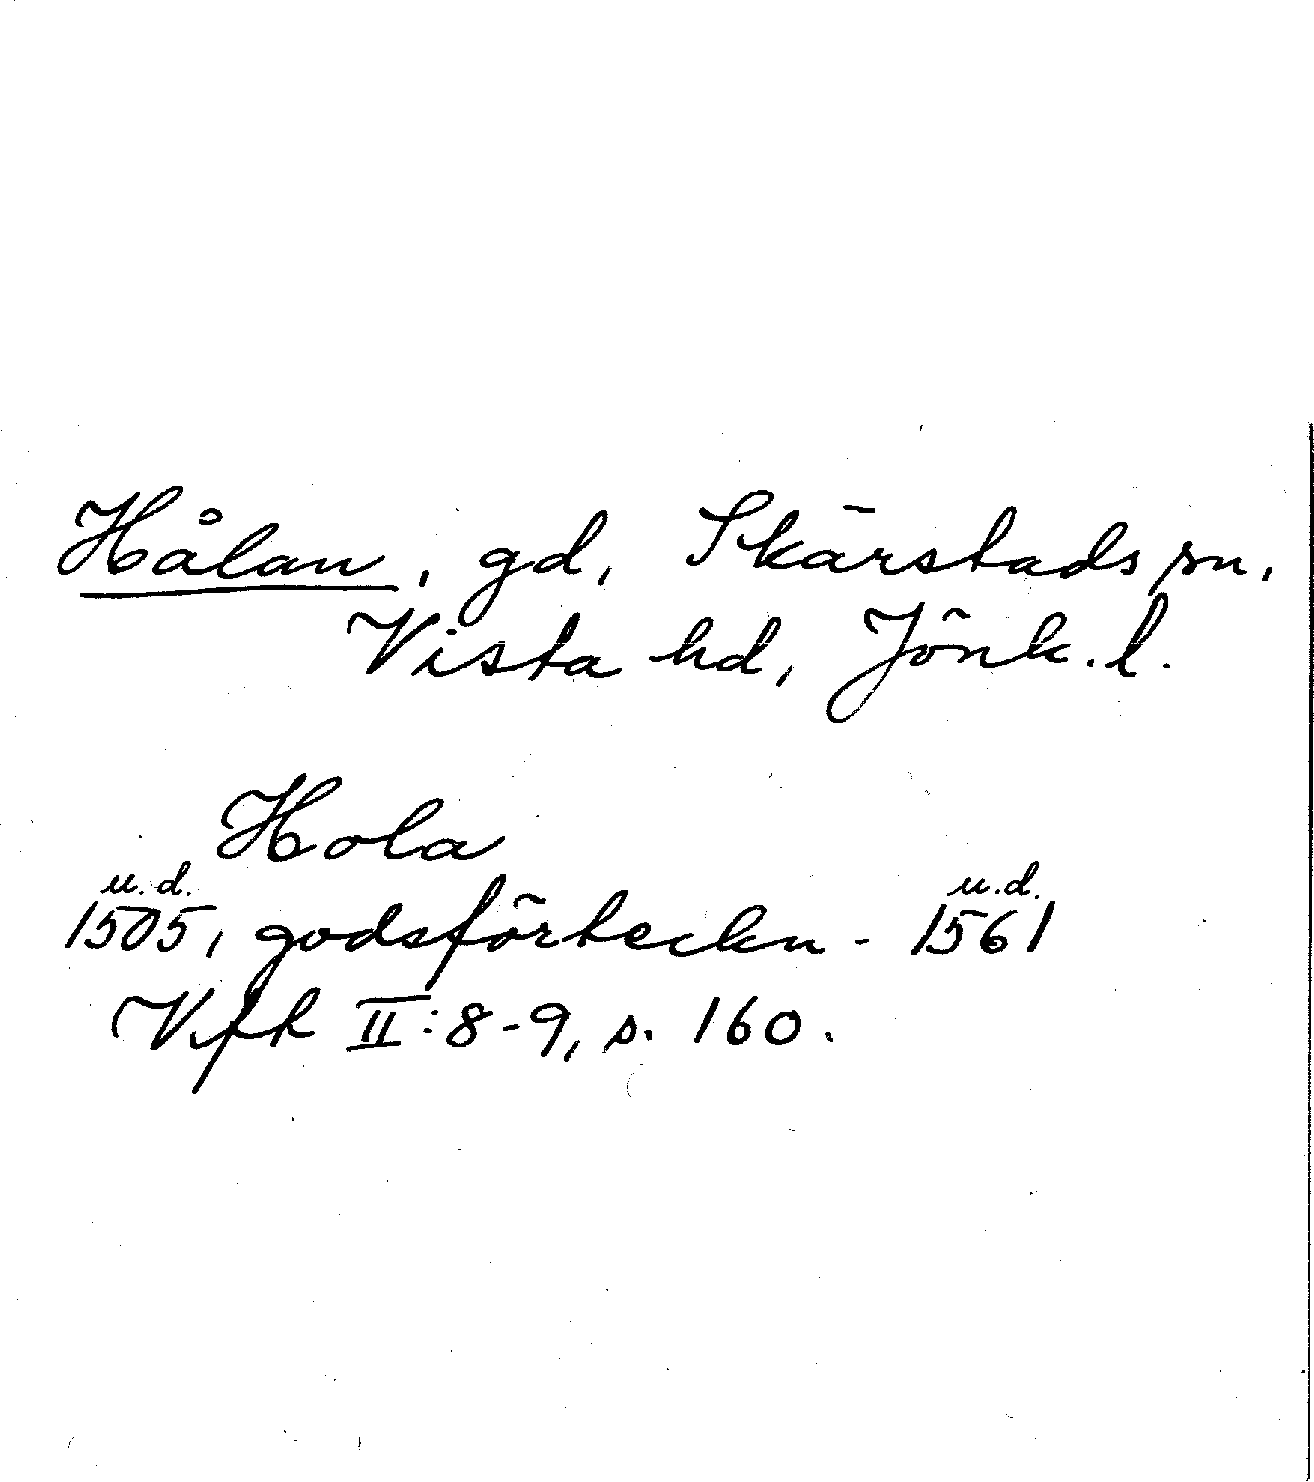 Hålan, gd, Skärstads sn,
Vista hd, Jönk. l.
Hola
u.d. u.d.
1505, godsförteckn - 1561
Vfk II:8-9, s. 160.